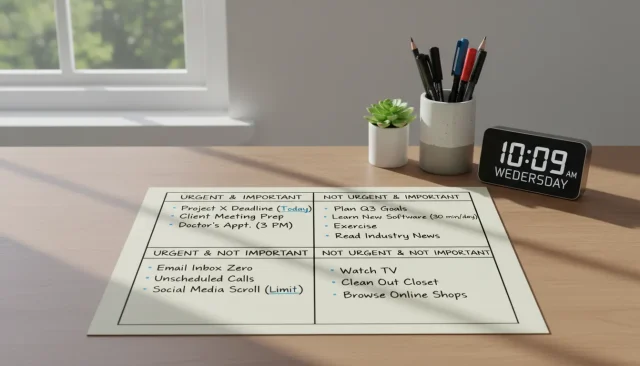 10:09 AM
WEDERSDAY
URGENT & IMPORTANT
Project X Deadline (Today)
Client Meeting Prep
Doctor's Appt. (3 PM)
NOT URGENT & IMPORTANT
Plan Q3 Goals
Learn New Software (30 min/day)
Exercise
Read Industry News
URGENT & NOT IMPORTANT
Email Inbox Zero
Unscheduled Calls
Social Media Scroll (Limit)
NOT URGENT & NOT IMPORTANT
Watch TV
Clean Out Closet
Browse Online Shops